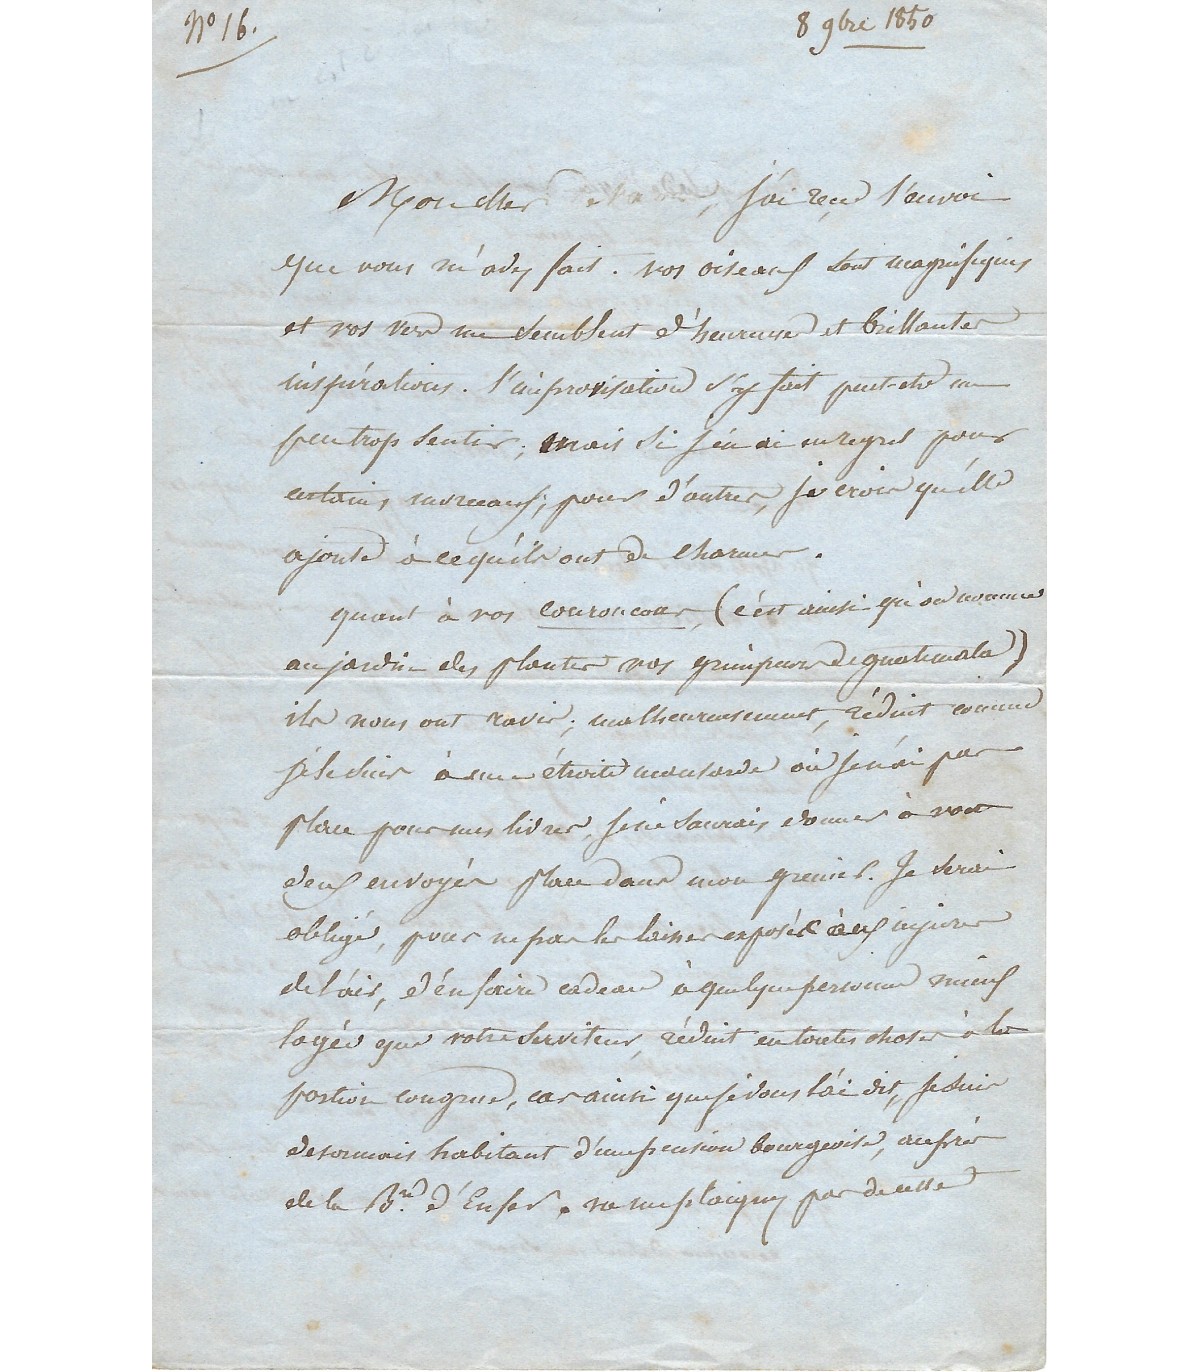 No 16.
8 9bre 1850
Mon cher, j'ai reçu l'envoi
que vous m'avez fait. vos oiseaux sont magnifiques
et vos vers me semblent d'heureuses et brillantes
inspirations. l'improvisation s'y fait peut-etre un
peu trop sentir; mais si j'en ai un regret pour
certains morceaux; pour d'autres, je crois qu'elle
ajoute à ce qu'ils ont de charmes.
quant à vos couroucous, (c'est ainsi qu'on nomme
au jardin des plantes vos grimpeurs de guatemala)
ils nous ont ravis; malheureusement, réduit comme
je le suis à une étroite mansarde où je n'ai pas
place pour mes livres, je ne saurais donner à vos
deux envoyés place dans mon grenier. Je serai
obligé, pour ne pas les laisser exposés aux injures
de l'air, d'en faire cadeau à quelque personne mieux
logée que votre serviteur, réduit en toutes choses à la
portion congrue, car ainsi que je vous l'ai dit, je suis
desormais habitant d'une pension bourgeoise, auprès
de la Bre. d'Enfer. ne me plaignez pas de cette